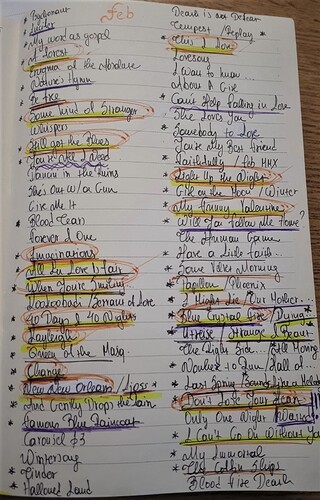 Feb
Psychonaut
Lucifer
* My word as gospel
* A Forest
Enigma of the Absolute
* Nature's Hymn
* Be Free
* Some Kind of Stranger
Whispers
* Still got the Blues
* You're All I Need
* Dancin in the Ruins
She's Out w/a Gun
Give Me It
* Blood Tears
Forever & One
* Imaginations
* All In Love Is Fair
* When You're Smiling
* / Servant of Love
* 40 Days & 40 Nights
* Kayleigh
* Enemy of the Mary
* Change
* New New Orleans / Lips
* And Gently Drops the Rain
* Famous Blue Raincoat
* Carousel #3
* Wintersong
* Tinder
* Hallowed Land
Death is not Defeat
Tempest / Replay *
* This I Love
Lovesong
I Want to Know...
About A Girl
* Can't Help Falling in Love
She Loves You
* Somebody to Love
You're My Best Friend
* Faithfully / Feb MMX
* Hold Up the Night
* Girl on the Moon / Winter
* My Funny Valentine
* Will You Follow Me Home?
The Human Game
* Have a Little Faith
* Some Velvet Morning
* Papillon / Phoenix
* I Might Lie / Our Mother...
* Blue Crystal Fire / Dying
* / Strange / Beaut
* The Light Side... Still Moving
* Nowhere to Run / Hall of..
* Last Spring Being Like a
* Don't Lose Your
Only One Night /
* I Can't Go On Without You
* My Immortal
* The Coffin Ships
Blood Fire Death